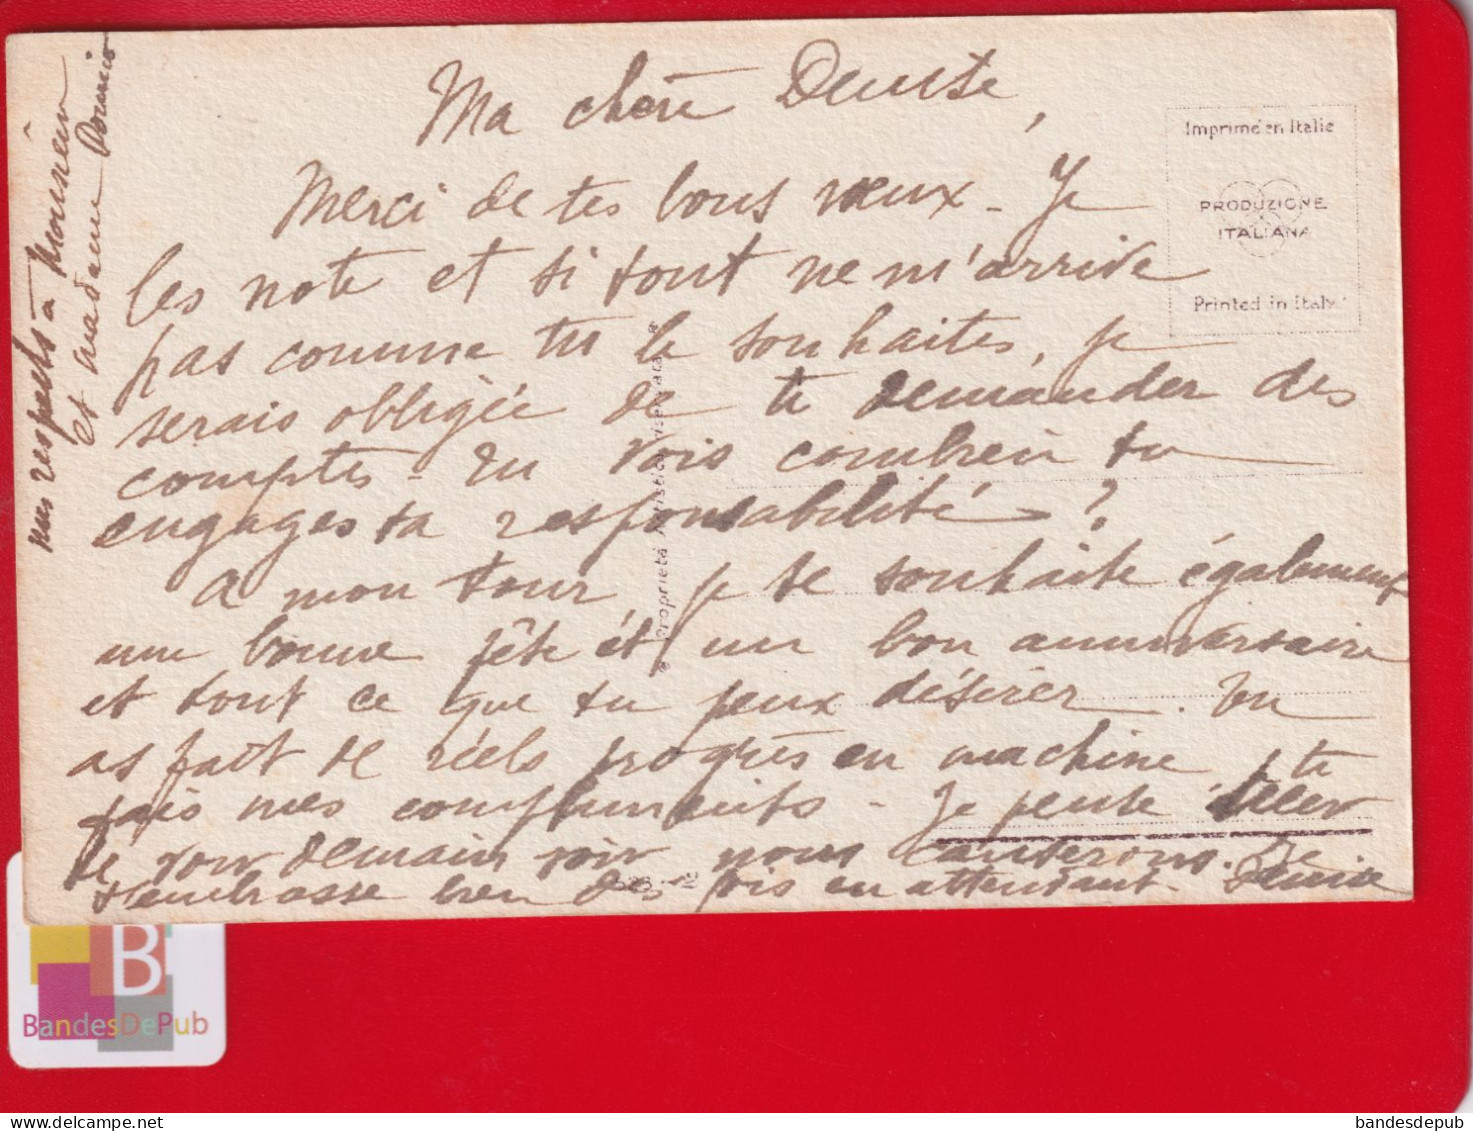 Ma chère Denise,
Merci de tes bons vœux - Je
les note et si tout ne m'arrive
pas comme tu le souhaites, je
serais obligée de te demander des
comptes - Tu vois combien tu
engages ta responsabilité ?
A mon tour, je te souhaite également
une bonne fête et un bon anniversaire
et tout ce que tu peux désirer. Tu
as fait de réels progrès en machine, je te
fais mes compliments - Je pense aller
te voir demain soir nous causerons. Je
t'embrasse bien des fois en attendant - Denise
mes respects à Monsieur
et madame
Imprimé en Italie
PRODUZIONE
ITALIANA
Printed in Italy
Proprietà Artistica riservata
BandesDePub
B
bandesdepub